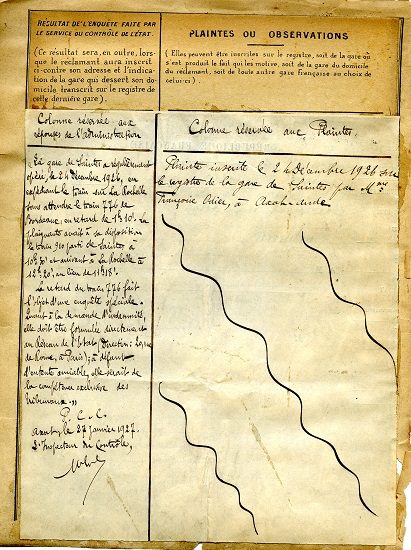 RÉSULTAT DE L'ENQUÊTE FAITE PAR
LE SERVICE DU CONTRÔLE DE L'ÉTAT.
(Ce résultat sera, en outre, lors-
que le réclamant aura inscrit
ci-contre son adresse et l'indica-
tion de la gare qui dessert son do-
micile, transcrit sur le registre de
celle dernière gare).
PLAINTES OU OBSERVATIONS
(Elles peuvent être inscrites sur le registre, soit de la gare où
s'est produit le fait qui les motive, soit de la gare du domicile
du réclamant, soit de toute autre gare française au choix de
celui-ci).
Colonne réservée aux
réponses de l'administration
"La gare de Saintes a régulièrement
opéré, le 24 décembre 1926, en
expédiant le train sur La Rochelle
sans attendre le train 776 de
Bordeaux, en retard de 1h10'. La
plaignante avait à sa disposition
le train 910 parti de Saintes à
10h30' et arrivant à La Rochelle à
12h20' au lieu de 11h18'.
Le retard du train 776 fait
l'objet d'une enquête spéciale.
Quant à la demande d'indemnité,
elle doit être formulée directement
au Réseau de l'Etat (Direction:
de Rome, à Paris); à défaut
d'entente amiable, elle serait de
la compétence exclusive des
tribunaux."
P.C.C.
le 27 janvier 1927.
L'Inspecteur du Contrôle,
Colonne réservée aux Plaintes.
Plainte inscrite le 24 Décembre 1926 sur
le registre de la gare de Saintes par Mme
Françoise à